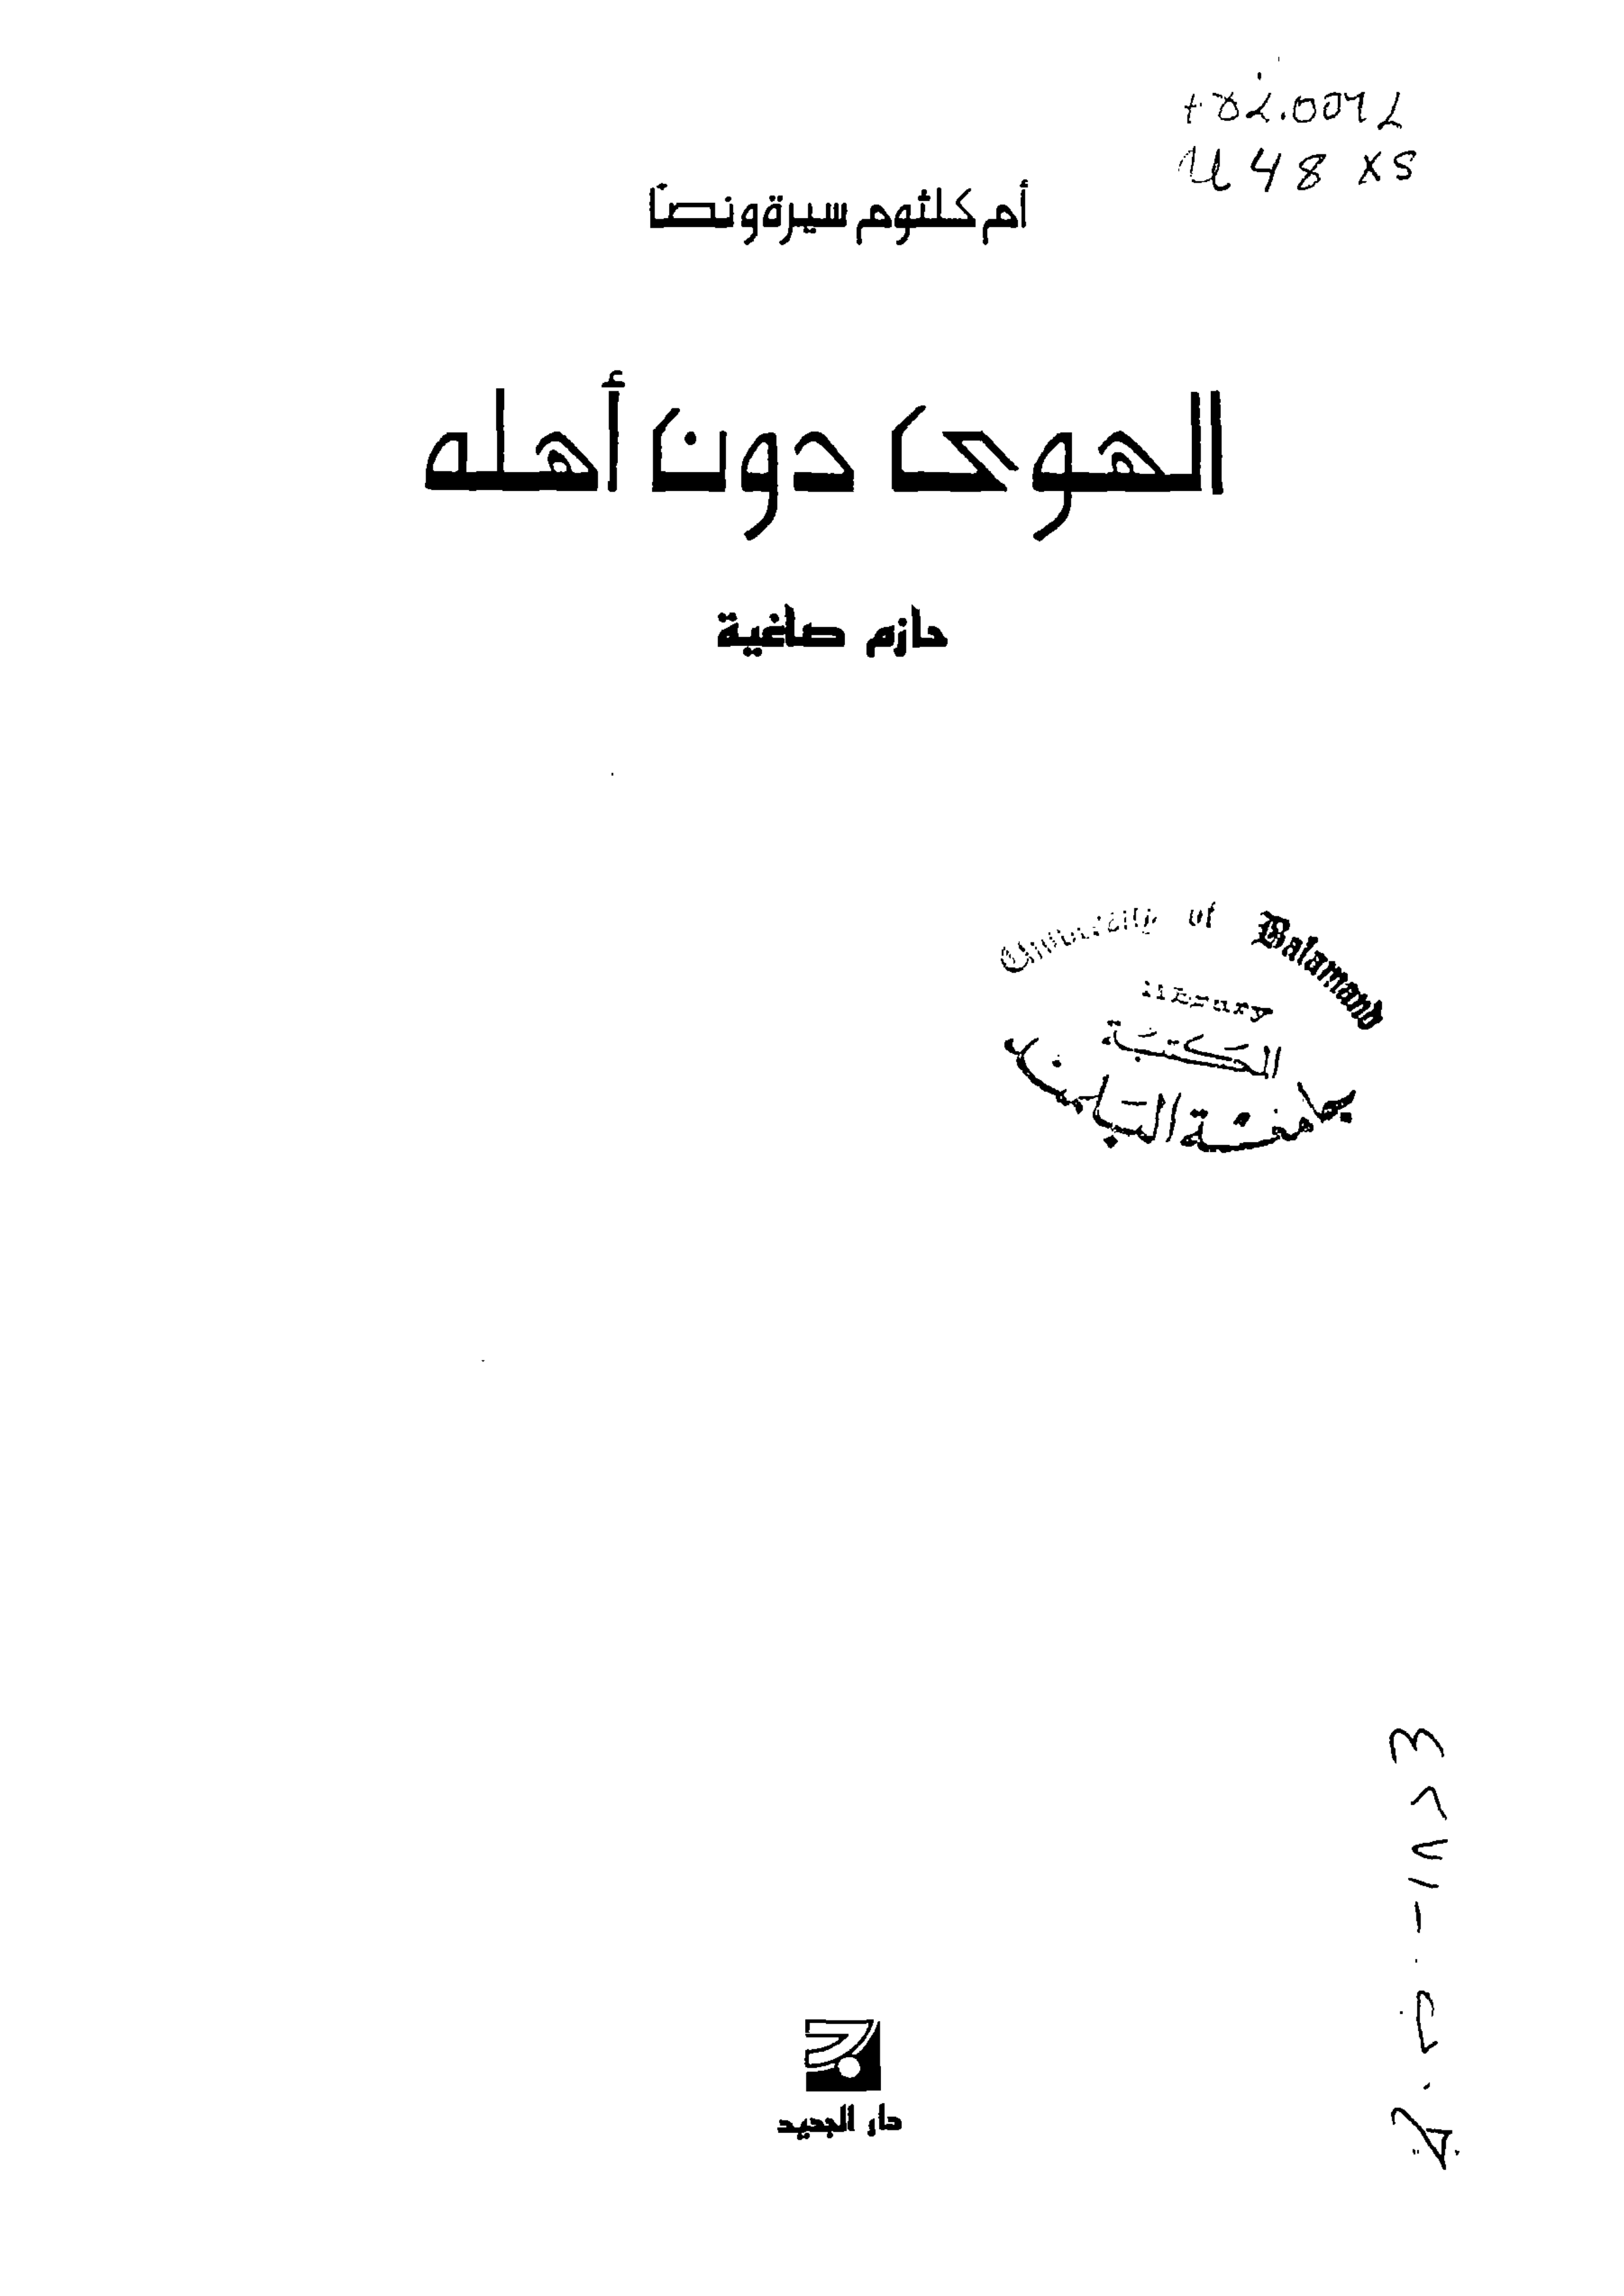 U 48 xs
أم كلثوم سيرة ونصاً
الهوى دون أهله
حازم صاغية
University of Balamand
Library
المكتبة
جامعة البلمند
دار الجديد